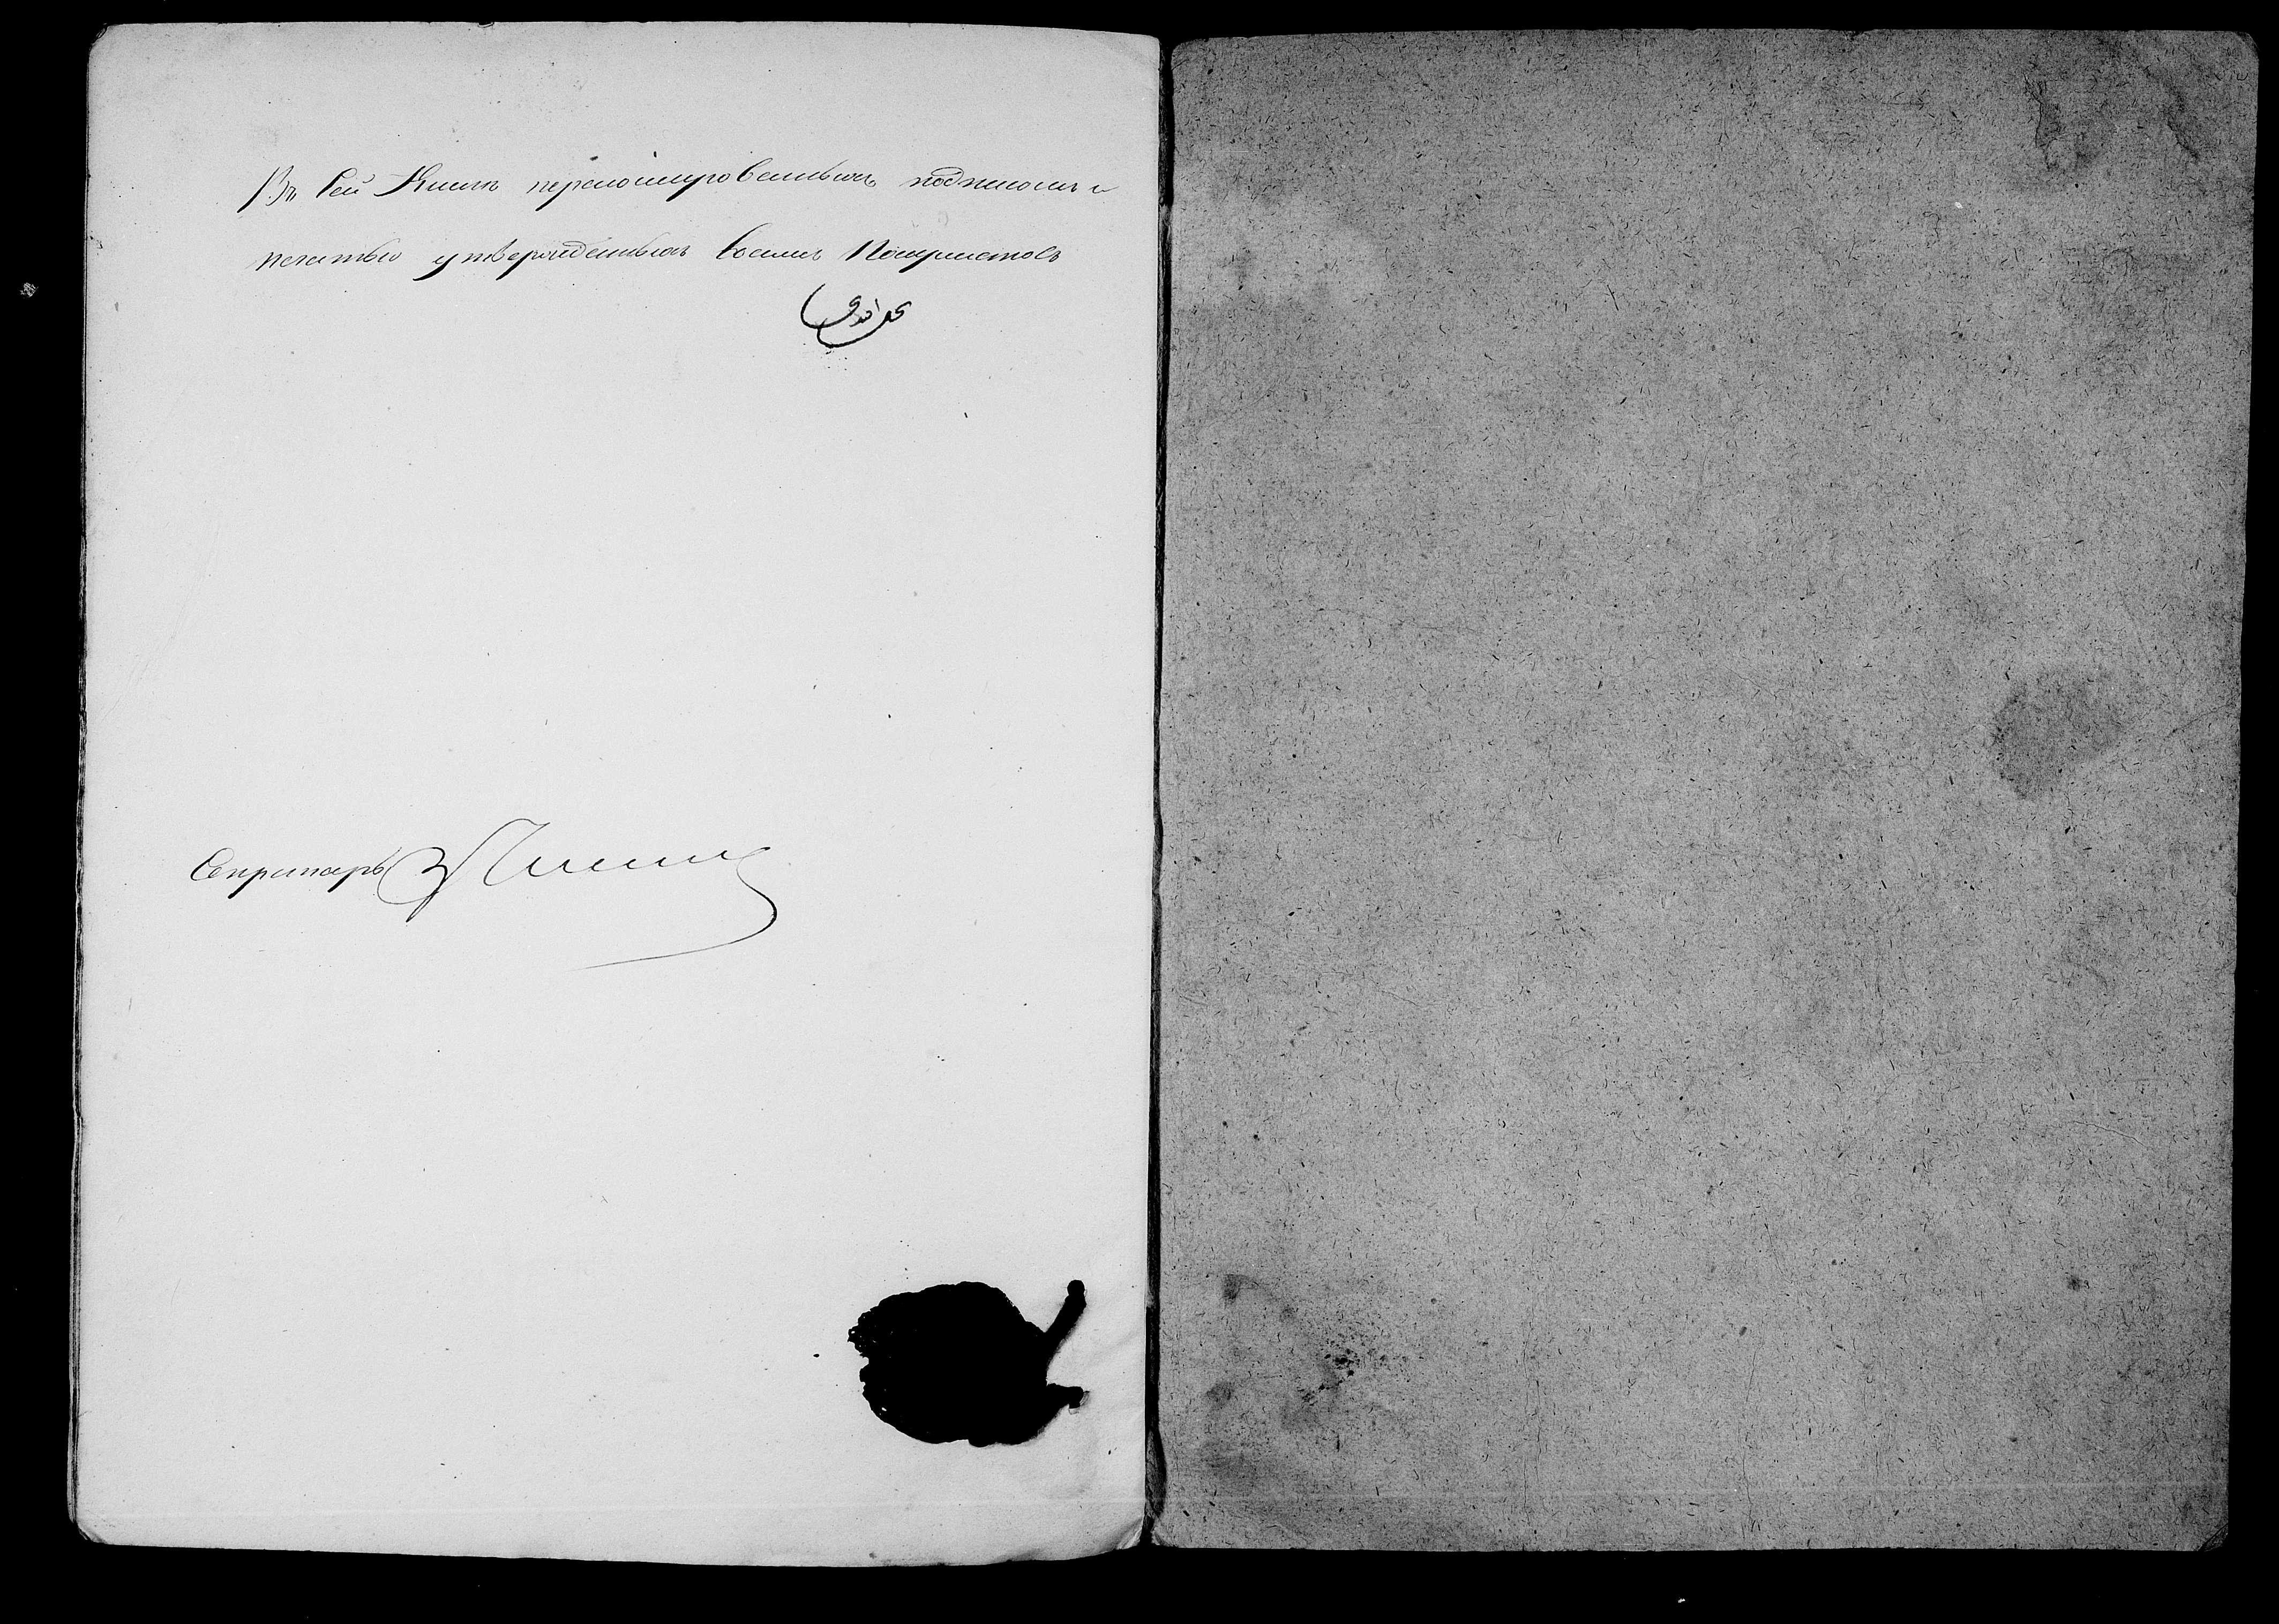 Въ Сей Книгѣ перенумерованныхъ подписомъ и
печатью утвержденныхъ восемь Полулистовъ
Секретарь